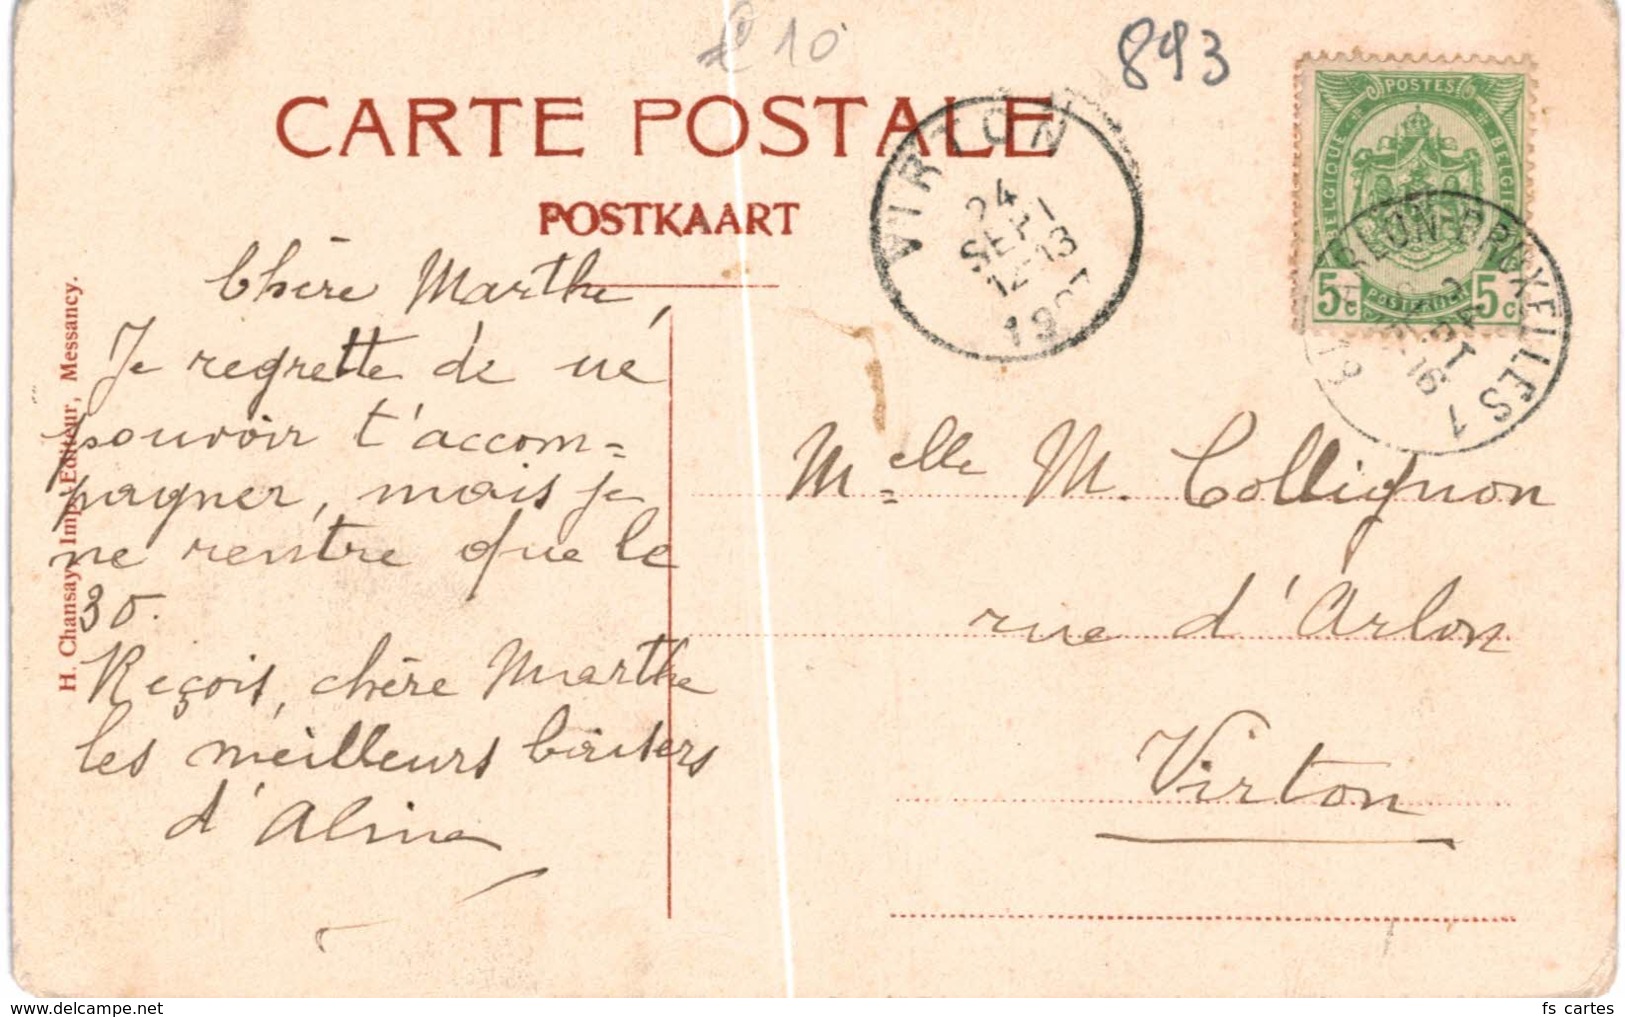 £10
893
CARTE POSTALE
POSTKAART
VIRTON
24
SEPT
12-13
1907
POSTES
BELGIQUE
BELGIE
5c
5c
POSTERIJEN
ARLON-BRUXELLES 1
SEPT
16
H. Chansay, Imp.-Editeur, Messancy.
Chère Marthe,
Je regrette de ne
pouvoir t'accom=
pagner, mais je
ne rentre que le
30.
Reçois, chère Marthe
les meilleurs baisers
d'Aline
Melle M. Collignon
rue d'Arlon
Virton
www.delcampe.net
fs cartes